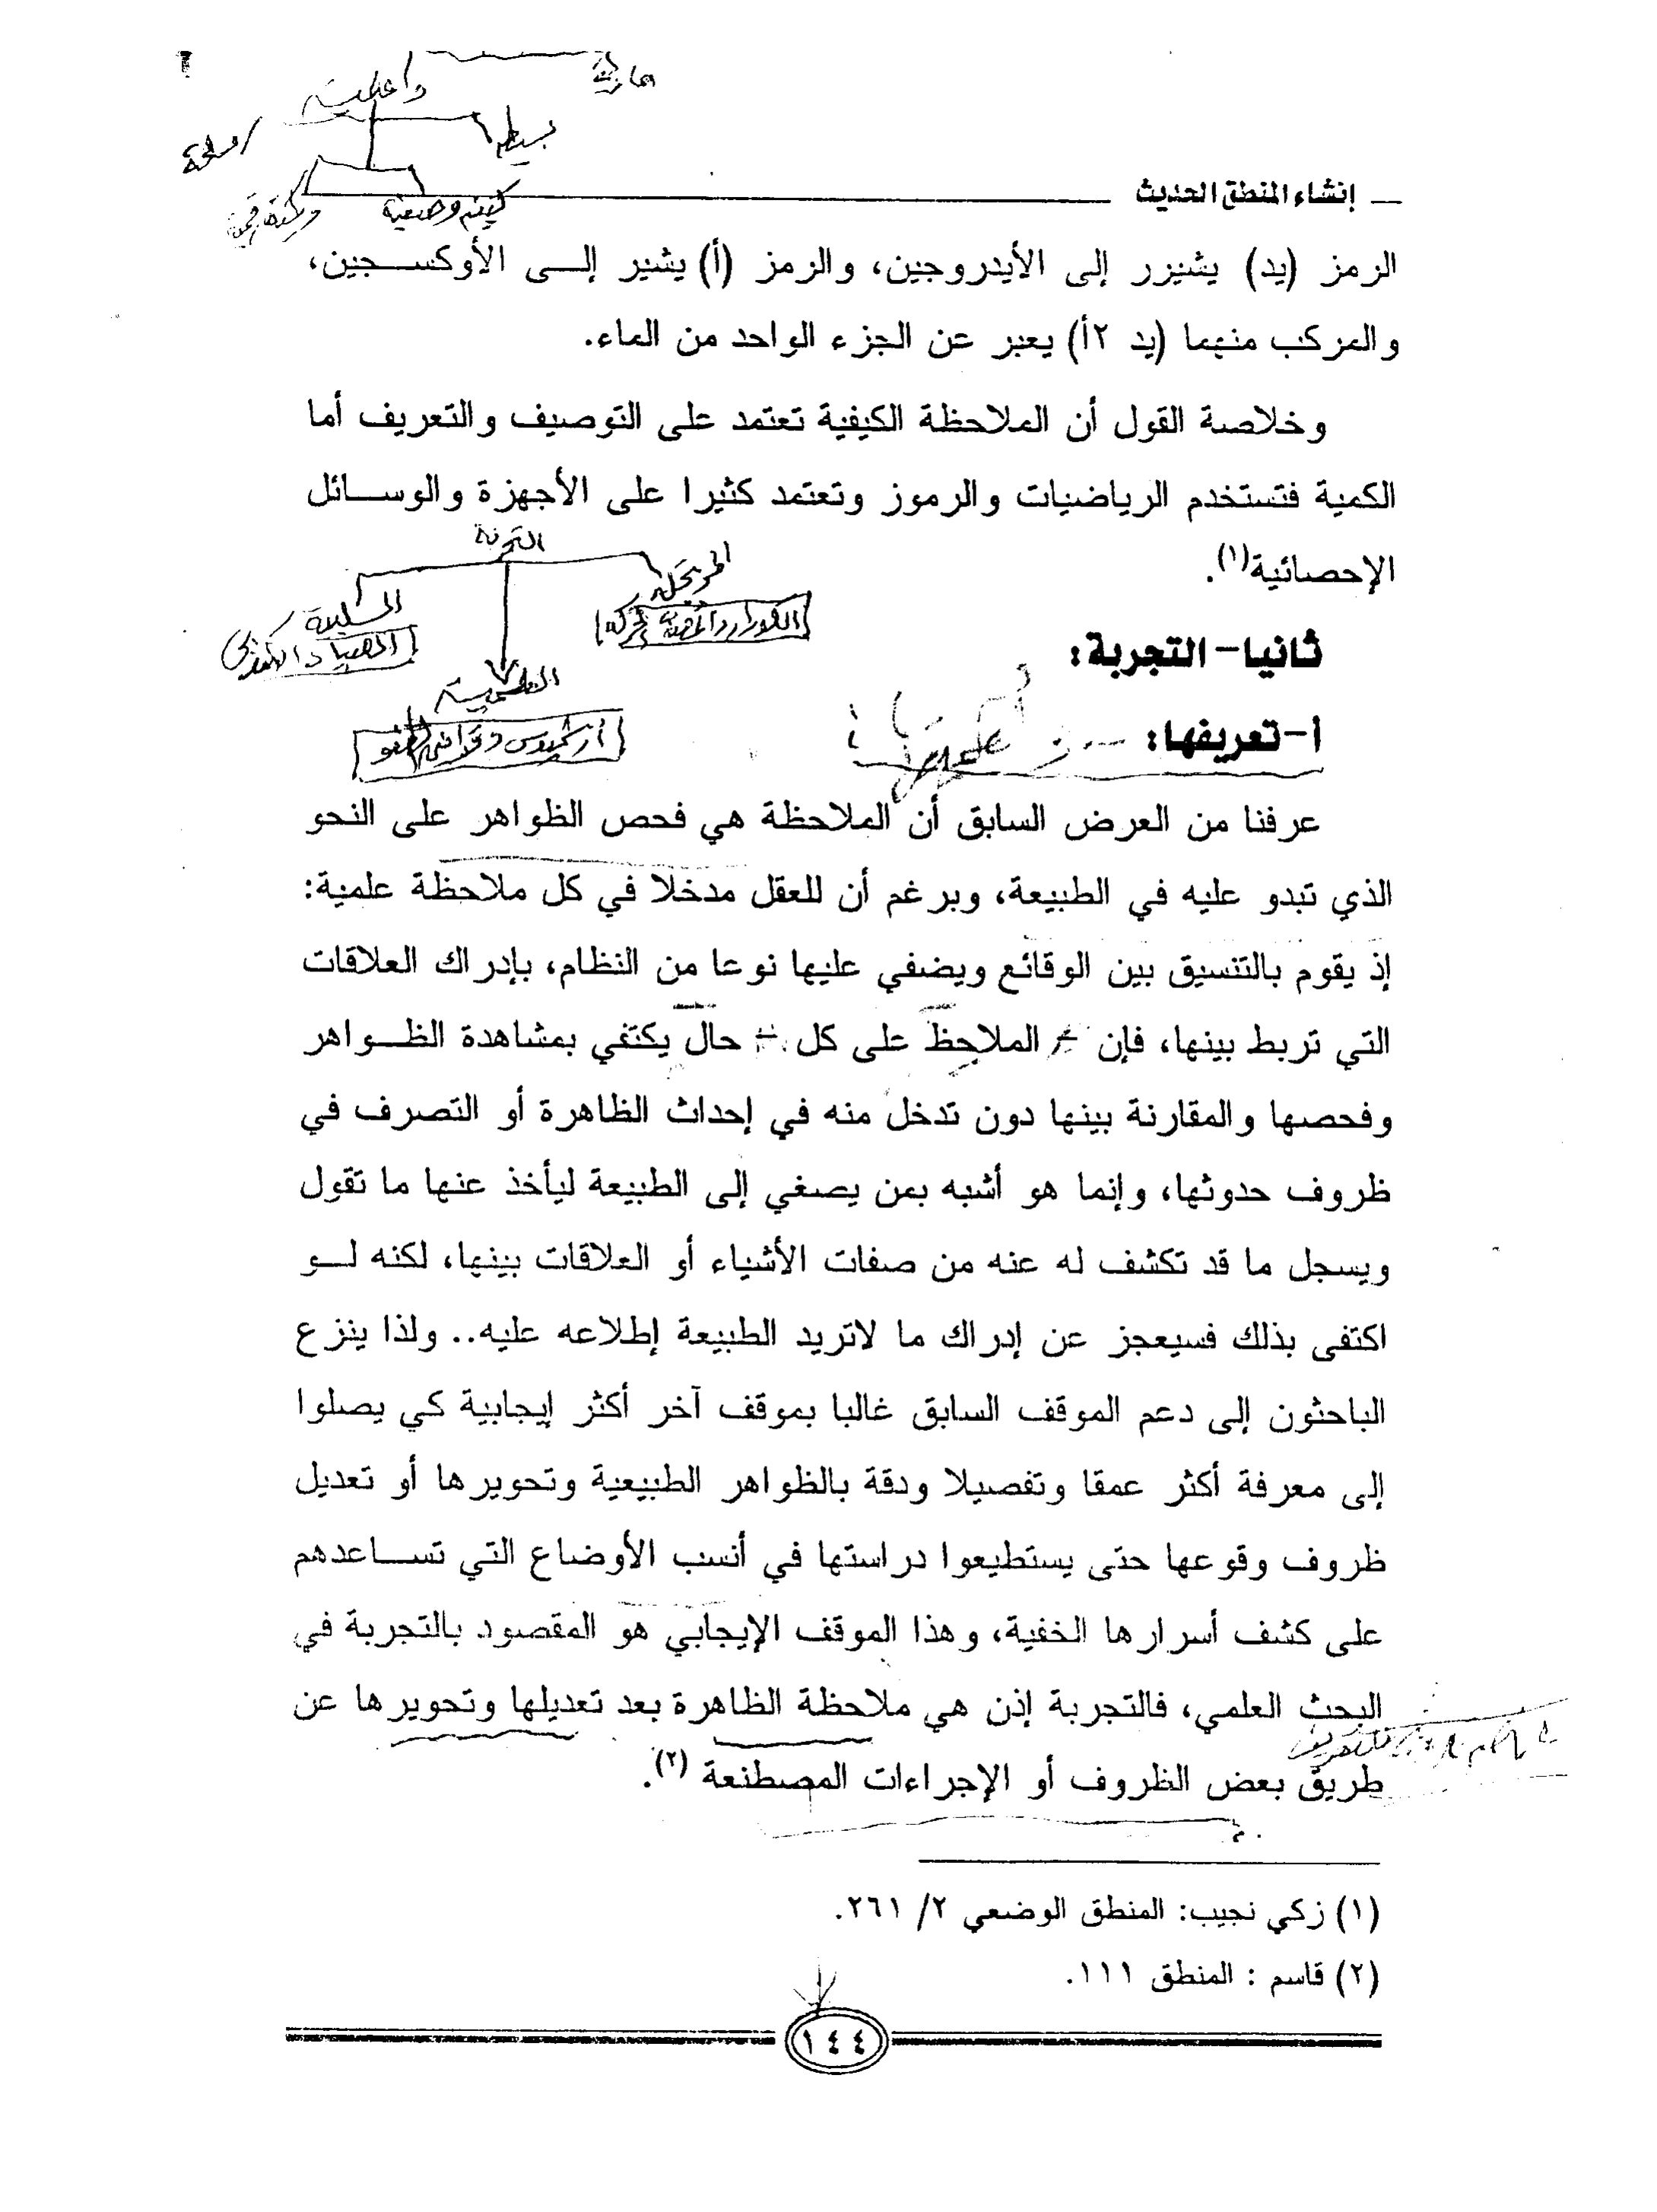 إنشاء المنطق الحديث
بسيطة
مسلحة
كيفية وصفية
الرمز (يد) يشيرر إلى الأيدروجين، والرمز (أ) يشير إلى الأوكسجين،
والمركب منهما (يد ٢أ) يعبر عن الجزء الواحد من الماء.
وخلاصة القول أن الملاحظة الكيفية تعتمد على التوصيف والتعريف أما
الكمية فتستخدم الرياضيات والرموز وتعتمد كثيرا على الأجهزة والوسائل
الإحصائية(١).
التجربة
المرتجلة
العلمية
ثانيا- التجربة:
أ- تعريفها:
عرفنا من العرض السابق أن الملاحظة هي فحص الظواهر على النحو
الذي تبدو عليه في الطبيعة، وبرغم أن للعقل مدخلا في كل ملاحظة علمية:
إذ يقوم بالتنسيق بين الوقائع ويضفي عليها نوعا من النظام، بإدراك العلاقات
التي تربط بينها، فإن الملاحظ على كل حال يكتفي بمشاهدة الظواهر
وفحصها والمقارنة بينها دون تدخل منه في إحداث الظاهرة أو التصرف في
ظروف حدوثها، وإنما هو أشبه بمن يصغي إلى الطبيعة ليأخذ عنها ما تقول
ويسجل ما قد تكشف له عنه من صفات الأشياء أو العلاقات بينها، لكنه لو
اكتفى بذلك فسيعجز عن إدراك ما لاتريد الطبيعة إطلاعه عليه.. ولذا ينزع
الباحثون إلى دعم الموقف السابق غالبا بموقف آخر أكثر إيجابية كي يصلوا
إلى معرفة أكثر عمقا وتفصيلا ودقة بالظواهر الطبيعية وتحويرها أو تعديل
ظروف وقوعها حتى يستطيعوا دراستها في أنسب الأوضاع التي تساعدهم
على كشف أسرارها الخفية، وهذا الموقف الإيجابي هو المقصود بالتجربة في
البحث العلمي، فالتجربة إذن هي ملاحظة الظاهرة بعد تعديلها وتحويرها عن
طريق بعض الظروف أو الإجراءات المصطنعة (٢).
(١) زكي نجيب: المنطق الوضعي ٢/ ٢٦١.
(٢) قاسم : المنطق ١١١.
١٤٤